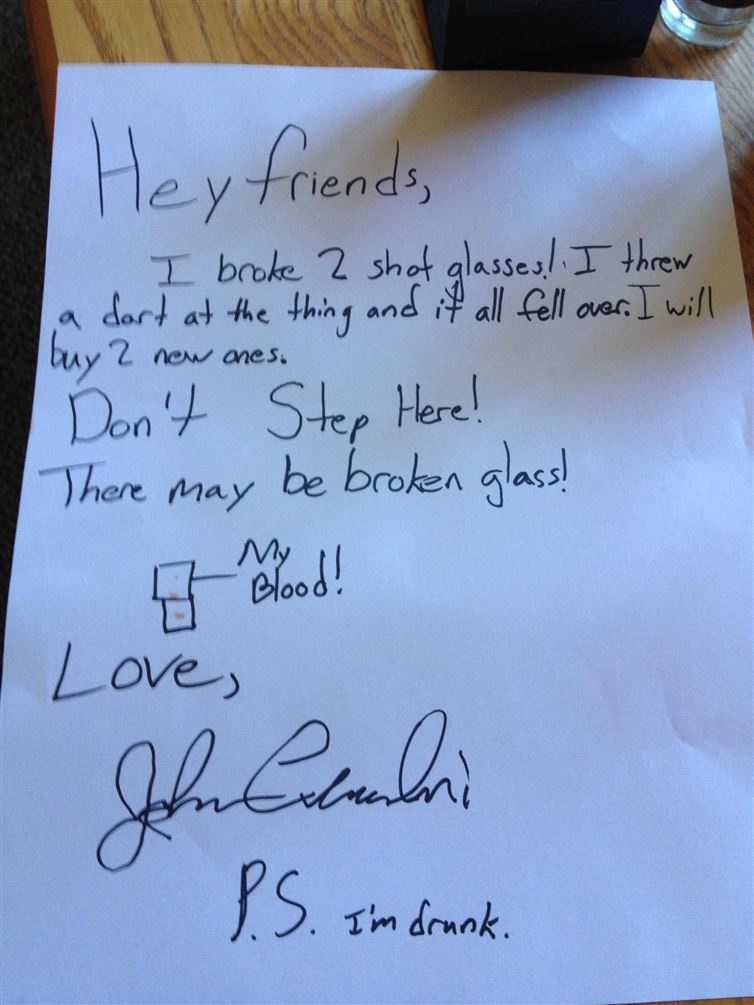 Hey friends,
I broke 2 shot glasses! I threw
a dart at the thing and it all fell over. I will
buy 2 new ones.
Don't Step Here!
There may be broken glass!
My
Blood!
Love,
John
P.S. I'm drunk.